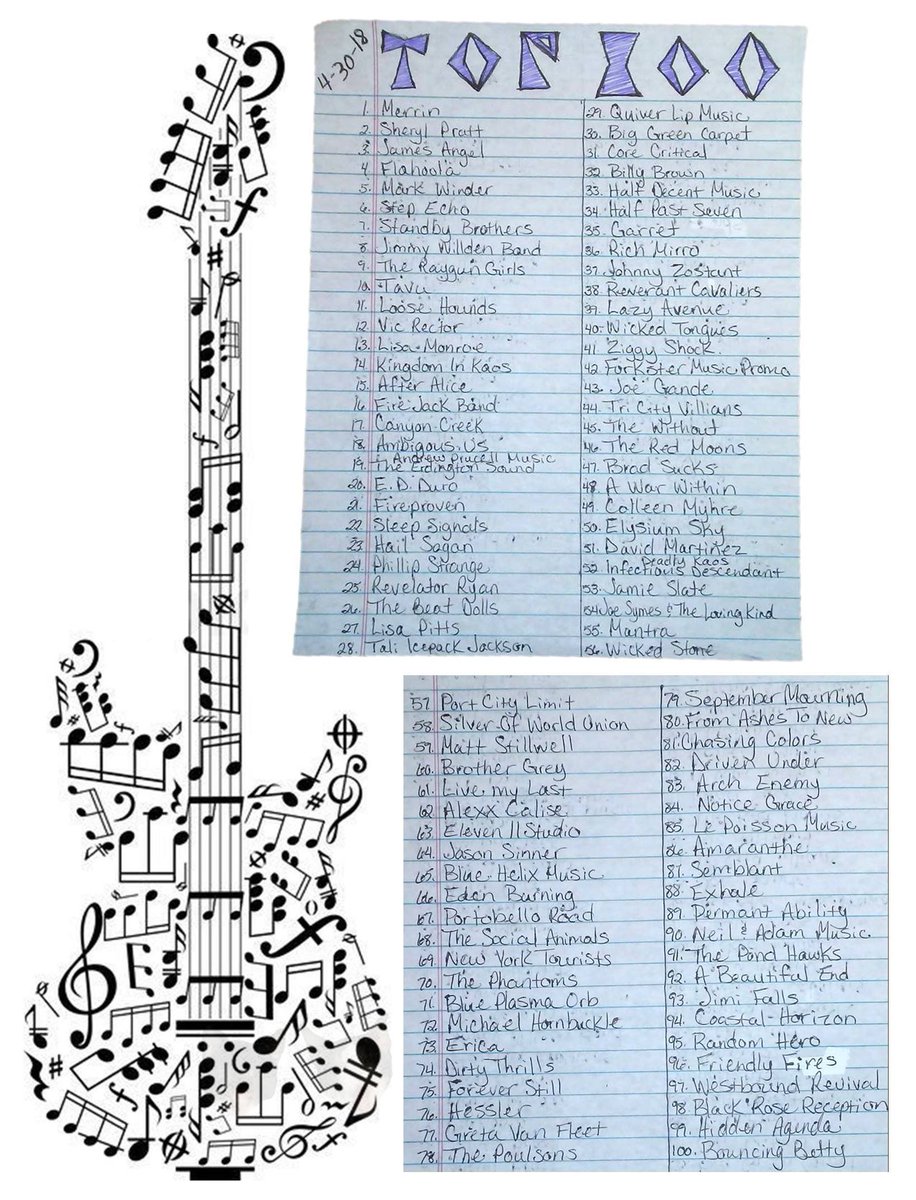 4-30-18
TOP 100
1. Merrin
2. Sheryl Pratt
3. James Angel
4. Flahoola
5. Mark Winder
6. Step Echo
7. Standby Brothers
8. Jimmy Willden Band
9. The Raygun Girls
10. Tavu
11. Loose Hounds
12. Vic Rector
13. Lisa Monroe
14. Kingdom In Kaos
15. After Alice
16. Fire Jack Band
17. Canyon Creek
18. Ambigous Us
& Andrew Prucell Music
19. The Erdington Sound
20. E.D. Duro
21. Fireproven
22. Sleep Signals
23. Hail Sagan
24. Phillip Strange
25. Revelator Ryan
26. The Beat Dolls
27. Lisa Pitts
28. Tali Icepack Jackson
29. Quiver Lip Music
30. Big Green Carpet
31. Core Critical
32. Billy Brown
33. Half Decent Music
34. Half Past Seven
35. Garret
36. Rich Mirro
37. Johnny Zostant
38. Reverant Cavaliers
39. Lazy Avenue
40. Wicked Tongues
41. Ziggy Shock
42. Forkster Music Promo
43. Joe Grande
44. Tri City Villians
45. The Without
46. The Red Moons
47. Brad Sucks
48. A War Within
49. Colleen Myhre
50. Elysium Sky
51. David Martinez
Deadly Kaos
52. Infectious Descendant
53. Jamie Slate
54. Joe Symes & The Loving Kind
55. Mantra
56. Wicked Stone
57. Port City Limit
58. Silver Of World Union
59. Matt Stillwell
60. Brother Grey
61. Live my Last
62. Alexx Calise
63. Eleven 11 Studio
64. Jason Sinner
65. Blue Helix Music
66. Eden Burning
67. Portobello Road
68. The Social Animals
69. New York Tourists
70. The Phantoms
71. Blue Plasma Orb
72. Michael Hornbuckle
73. Erica
74. Dirty Thrills
75. Forever Still
76. Hessler
77. Greta Van Fleet
78. The Poulsons
79. September Mourning
80. From Ashes To New
81. Chasing Colors
82. Driven Under
83. Arch Enemy
84. Notice Grace
85. Le Poisson Music
86. Amaranthe
87. Semblant
88. Exhale
89. Permant Ability
90. Neil & Adam Music
91. The Pond Hawks
92. A Beautiful End
93. Jimi Falls
94. Coastal Horizon
95. Random Hero
96. Friendly Fires
97. Westbound Revival
98. Black Rose Reception
99. Hidden Agenda
100. Bouncing Betty